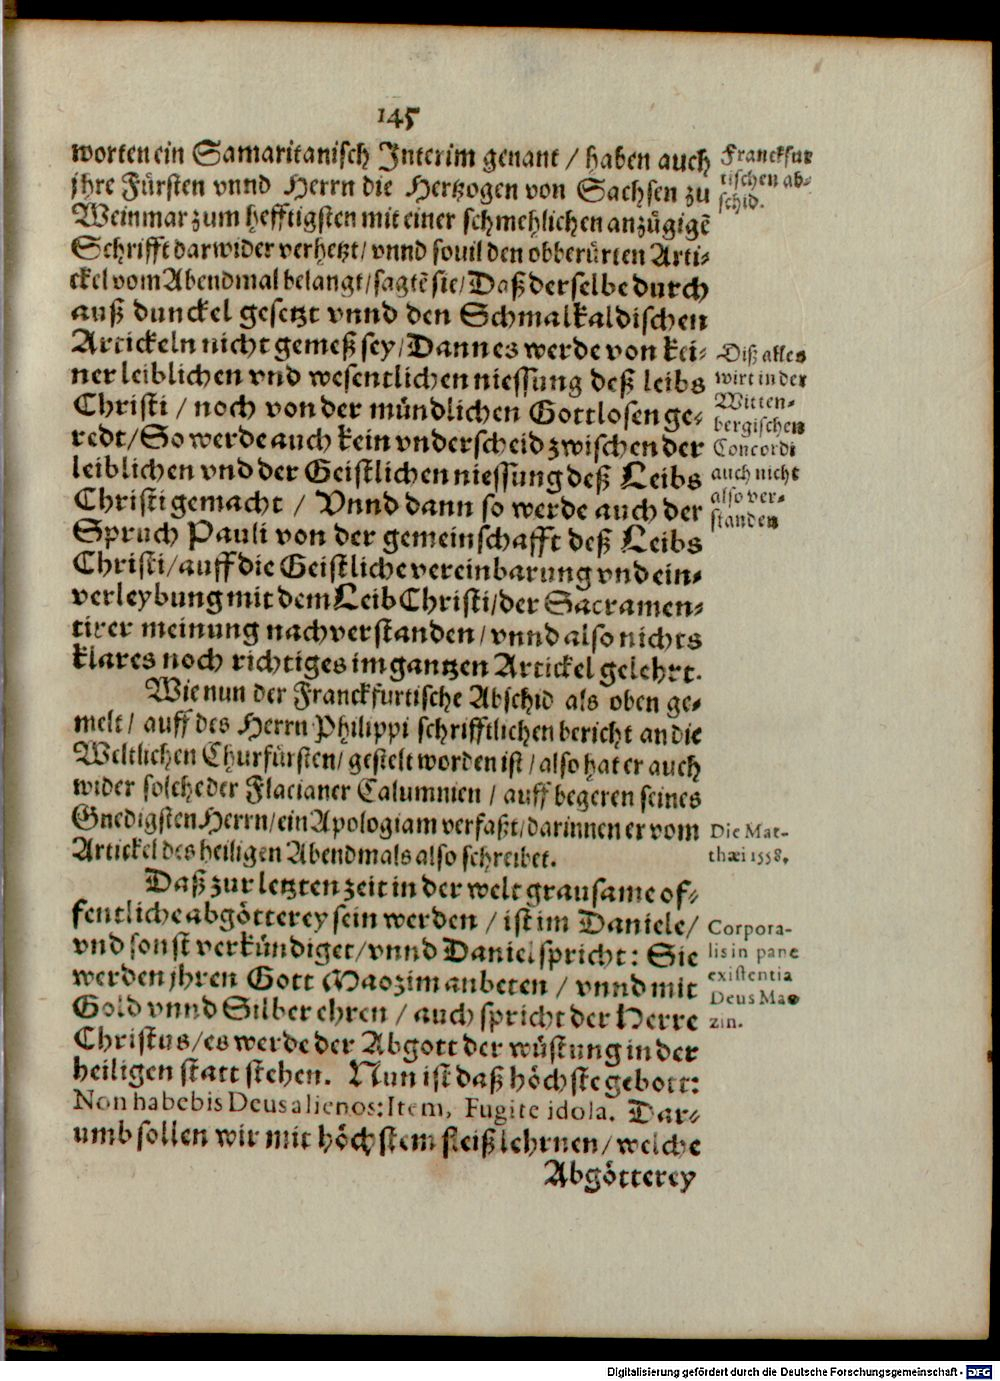 145
worten ein Samaritanisch Interim genant / haben auch
jhre Fürsten vnnd Herrn die Hertzogen von Sachsen zu
Weinmar zum hefftigsten mit einer schmehlichen anzügigẽ
Schrifft darwider verhetzt / vnnd souil den obberürten Arti-
ckel vom Abendmal belangt / sagtẽ sie / Daß derselbe durch
auß dunckel gesetzt vnnd den Schmalkaldischen
Artickeln nicht gemeß sey / Dann es werde von kei-
ner leiblichen vnd wesentlichen niessung deß leibs
Christi / noch von der mündlichen Gottlosen ge-
redt / So werde auch kein vnderscheid zwischen der
leiblichen vnd der Geistlichen niessung deß Leibs
Christi gemacht / Vnnd dann so werde auch der
Spruch Pauli von der gemeinschafft deß Leibs
Christi / auff die Geistliche vereinbarung vnd ein-
verleybung mit dem Leib Christi / der Sacramen-
tirer meinung nach verstanden / vnnd also nichts
klares noch richtiges im gantzen Artickel gelehrt.
Wie nun der Franckfurtische Abschid als oben ge-
melt / auff des Herrn Philippi schrifftlichen bericht an die
Weltlichen Churfürsten / gestelt worden ist / also hat er auch
wider solche der Flacianer Calumnien / auff begeren seines
Gnedigsten Herrn / ein Apologiam verfaßt / darinnen er vom
Artickel des heiligen Abendmals also schreibet.
Daß zur letzten zeit in der welt grausame of-
fentliche abgötterey sein werden / ist im Daniele /
vnd sonst verkündiget / vnnd Daniel spricht: Sie
werden jhren Gott Maozim anbeten / vnnd mit
Gold vnnd Silber ehren / auch spricht der Herre
Christus / es werde der Abgott der wüstung in der
heiligen statt stehen. Nun ist daß höchste gebott:
Non habebis Deus alienos: Item, Fugite idola. Dar-
umb sollen wir mit höchstem fleiß lehrnen / welche
Abgötterey
Franckfur
tischen ab-
schid.
Diß alles
wirt in der
Witten-
bergischen
Concordi
auch nicht
also ver-
standen
Die Mat-
thæi 1558.
Corpora-
lis in pane
existentia
Deus Mao
zin.
Digitalisierung gefördert durch die Deutsche Forschungsgemeinschaft - DFG